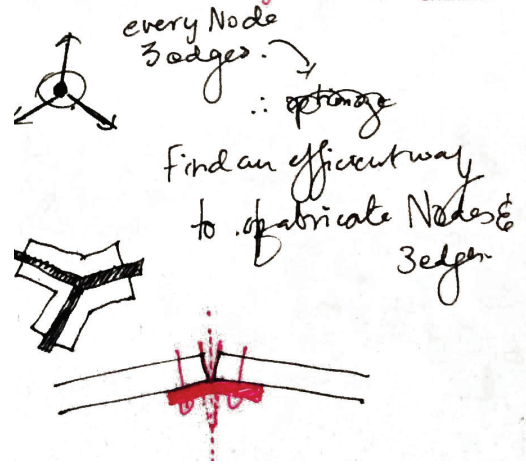 every Node
3 edges.
∴ optimize
Find an efficient way
to fabricate Nodes &
3 edges.